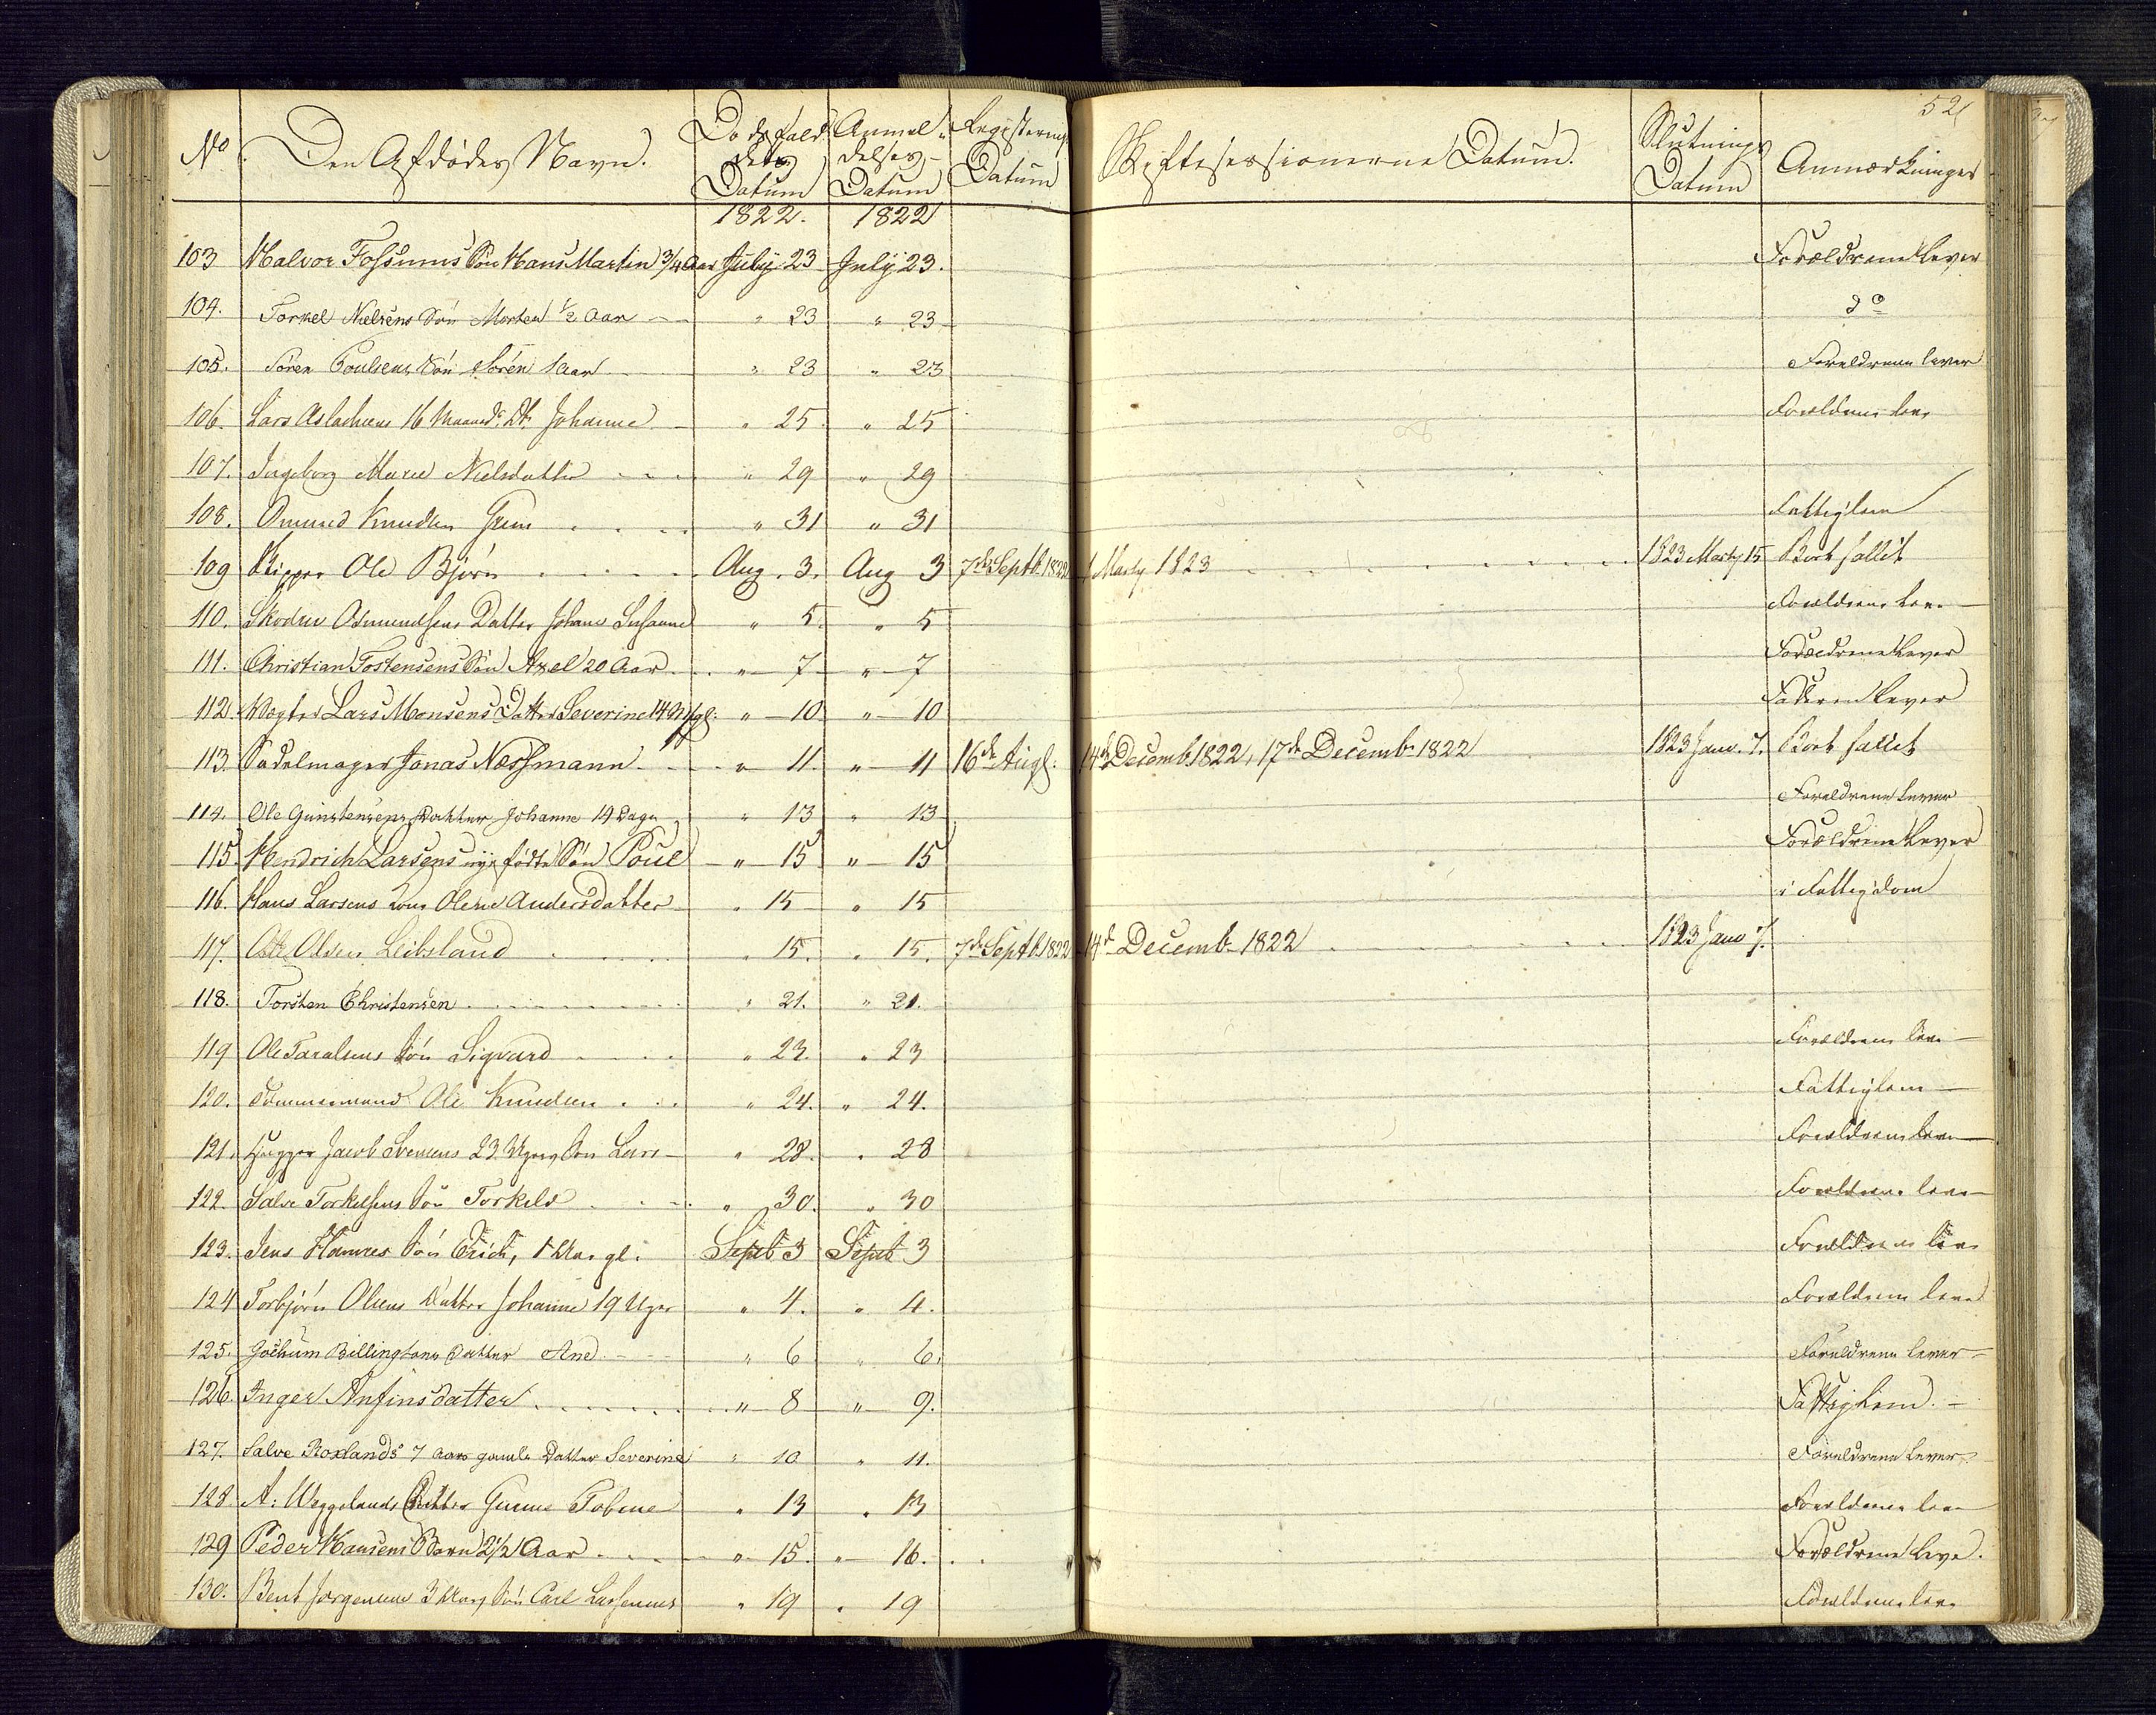 52
No. Den Afdødes Navn. Dødsfaldets Datum Anmeldelses Datum Registerings Datum Skiftesessionerne Datum. Slutnings Datum Anmærkninger
1822. 1822
103 Halvor Fossums Søn Hans Martin 3/4 Aar July 23 July 23. Forældrene Lever
104. Torkel Nielsens Søn Morten 1/2 Aar " 23 " 23 do
105. Sören Poulsens Sön Sören 1 Aar " 23 " 23 Foreldrene lever
106. Lars Aslachsens 16 Maaneds Dt. Johanne " 25 " 25 Forældrene leve
107. Ingeborg Marie Nielsdatter " 29 " 29
108. Omund Knudsen " 31 " 31 Fattiglem
109 Skipper Ole Björn Aug. 3. Aug 3 7de Septb. 1822 1 Marty 1823 1823 Marty 15 Boet fallit
110. Asmundsens Datter Johane Susanne " 5. " 5 Forældrene leve
111. Christian Tostensens Søn Axel 20 Aar " 7 " 7 Forældrene Lever
112. Vægter Lars Monsens Datter Severine 14 gl. " 10 " 10 Faderen Lever
113. Sadelmager Jonas Næssmann " 11. " 11 16de Augs. 14de Decemb. 1822, 17de Decemb. 1822 1823 Janv. 7. Boet fallit
114. Ole Gunstensens Datter Johanne 14 Dage " 13 " 13 Foreldrene Lever
115. Hendrich Larsens nye fødte Søn Poul " 15 " 15 Forældrene Lever
116. Hans Larsens Kone Olene Andersdatter " 15 " 15 i Fattigdom
117. Ole Olsen Leibsland " 15. " 15. 7de Septb. 1822 14de Decemb. 1822 1823 Janv 7.
118. Torsten Christensen " 21. " 21.
119 Ole Taralsens Sön Sigvard " 23. " 23 Forældrene leve
120. Tömmermand Ole Knudsen " 24. " 24. Fattiglem
121. Jacob Svensens 23 Ugers Sön Lars " 28. " 28 Forældrene leve
122. Salve Torkelsens Sön Torkild " 30. " 30 Forældrene leve
123. Jens Hamres Sön Erich, 1 Aar gl. Septb 3 Septb 3 Forældrene leve
124 Torbjörn Olsens Datter Johanne 19 Uger " 4. " 4. Forældrene leve
125. Jochum Billingtons Datter Ane " 6 " 6. Foreldrene lever
126. Inger Anfinsdatter " 8 " 9. Fattiglem.
127. Salve Roxlands 7 Aars gamle Datter Severine " 10 " 11. Foreldrene Lever
128. A: Weggelands Datter Gunne Tobine " 13 " 13 Forældrene leve
129 Peder Hansens Barn 2 1/2 Aar " 15. " 16. Forældrene Leve.
130. Bent Jörgensens 3 Aars Sön Carl " 19 " 19 Forældrene leve